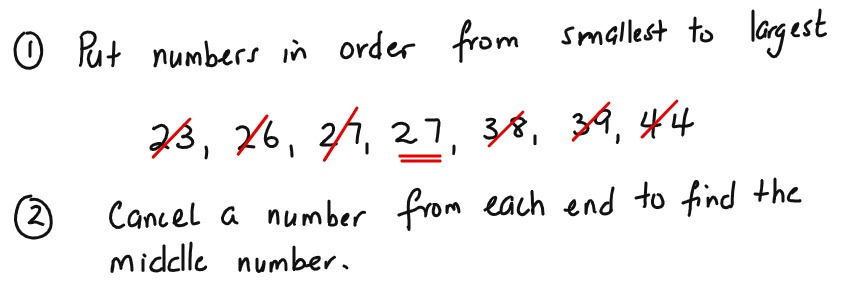 ① Put numbers in order from smallest to largest
23, 26, 27, 27, 38, 39, 44
② Cancel a number from each end to find the
middle number.